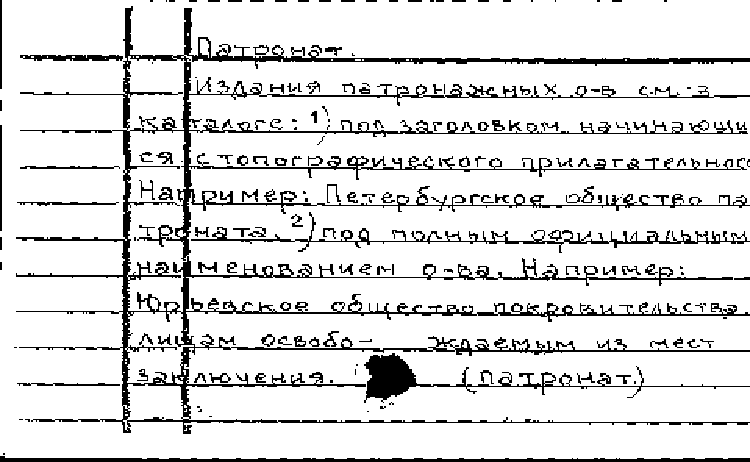 Патронат.
Издания патронажных о-в см. в
каталоге: 1) под заголовком, начинающи
ся с топографического прилагательного
Например: Петербургское общество па
троната. 2) под полным официальным
наименованием о-ва. Например:
Юрьевское общество покровительства
лицам освобо- ждаемым из мест
заключения. (Патронат.)